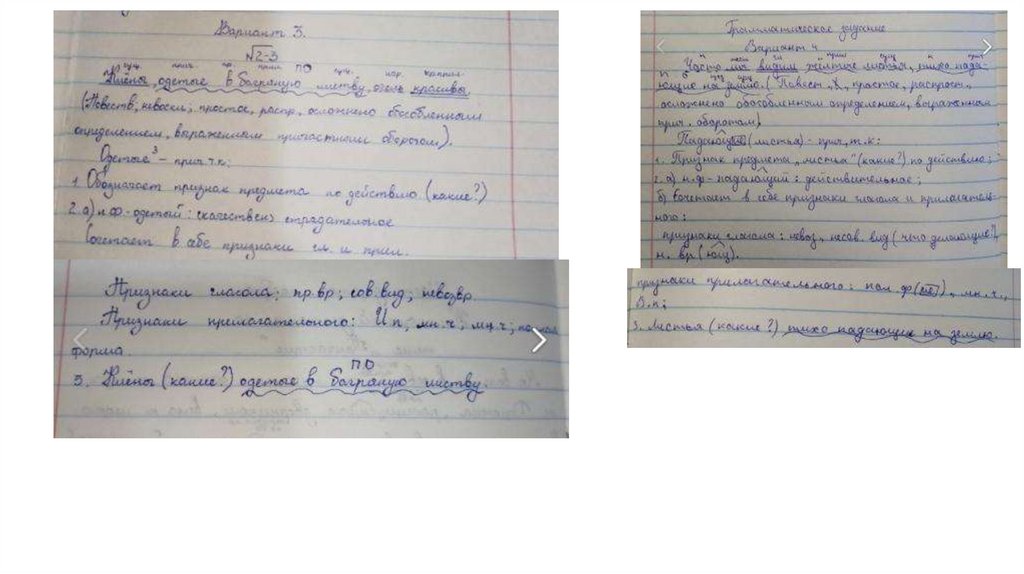 Вариант 3.
√2-3
сущ. прич. пр. прил. ПО сущ. нар.
Клёны, одетые в багряную листву, очень красивы
(Повеств, невоскл; простое, распр, осложнено обособленным
определением, выраженным причастным оборотом).
Одетые³ - прич. т.к:
1. Обозначает признак предмета по действию (какие?)
2. а) н.ф - одетый: страдательное
Сочетает в себе признаки гл. и прил.
Признаки глагола: пр.вр; сов.вид; невозвр.
Признаки прилагательного: И п; мн.ч; полная
форма.
ПО
3. Клёны (какие?) одетые в багряную листву.
Грамматическое задание
Вариант 4
Часто мы видим жёлтые листья, тихо пада-
ющие на землю. (Повест, простое, распрост,
осложнено обособленным определением, выраженным
прич. оборотом)
Падающие (листья) - прич, т.к:
1. Признак предмета "листья" (какие?) по действию;
2. а) н.ф - падающий: действительное;
б) Сочетает в себе признаки глагола и прилагатель-
ного:
признаки глагола: невоз., несов. вид (что делающие?),
н. вр. (ющ).
признаки прилагательного: пол. ф (ие), мн.ч.,
В.п;
3. Листья (какие?) тихо падающие на землю.